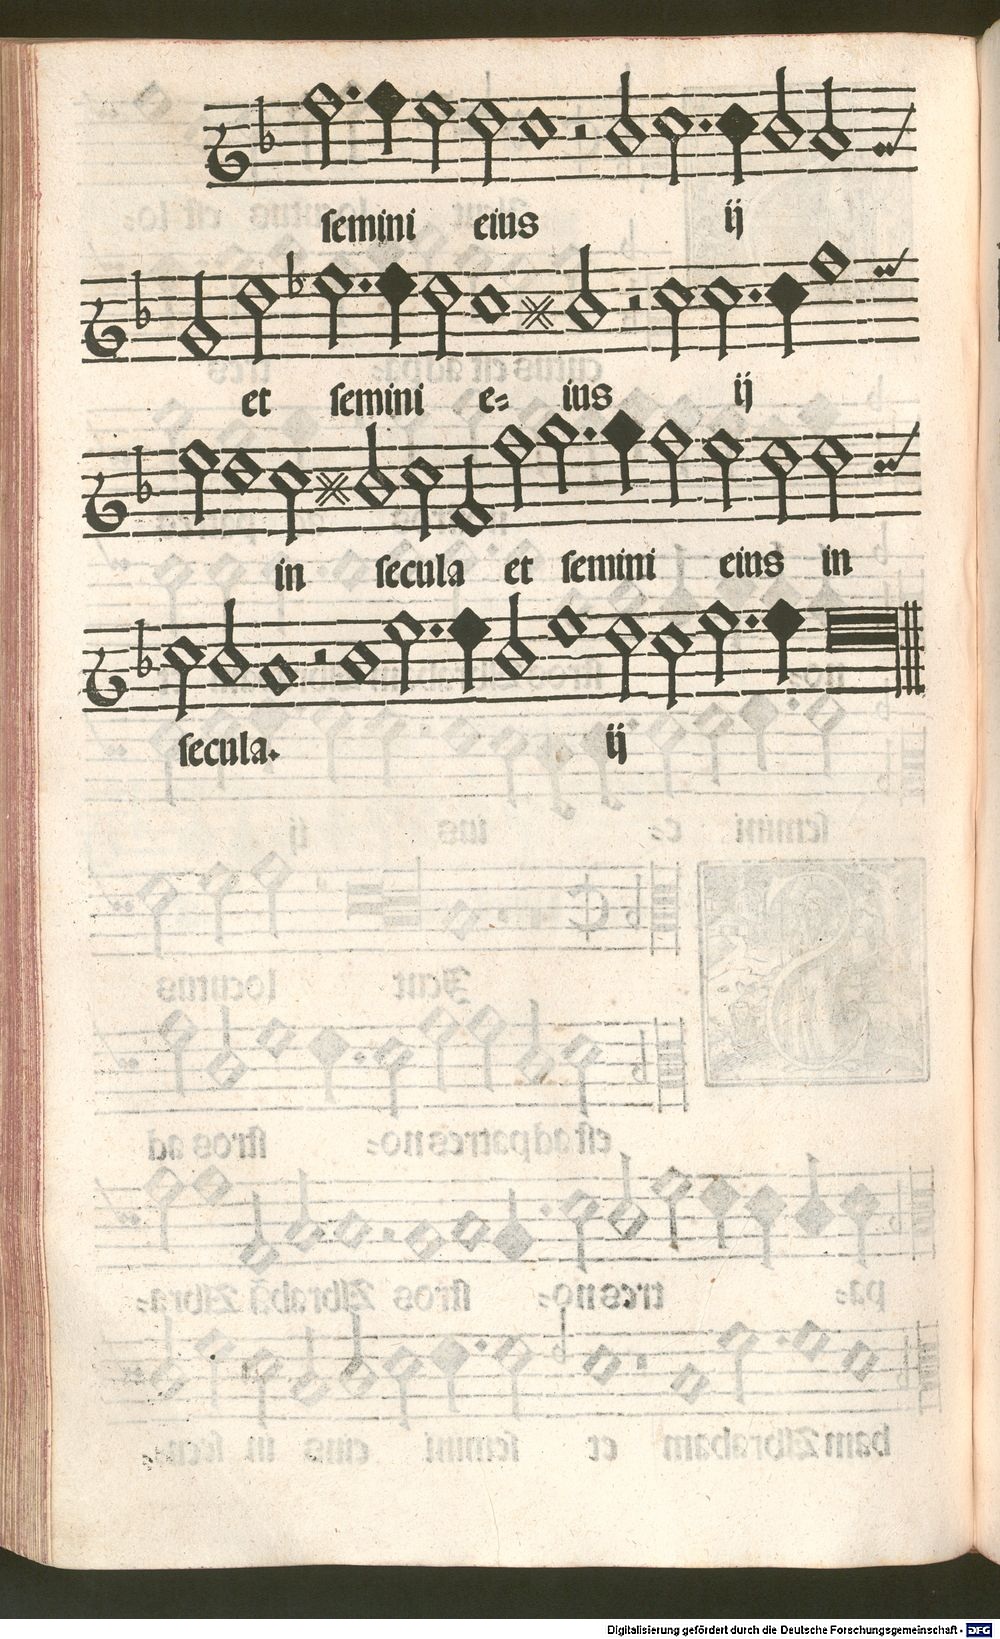 semini eius ij
et semini e= ius ij
in secula et semini eius in
secula. ij
Digitalisierung gefördert durch die Deutsche Forschungsgemeinschaft - DFG